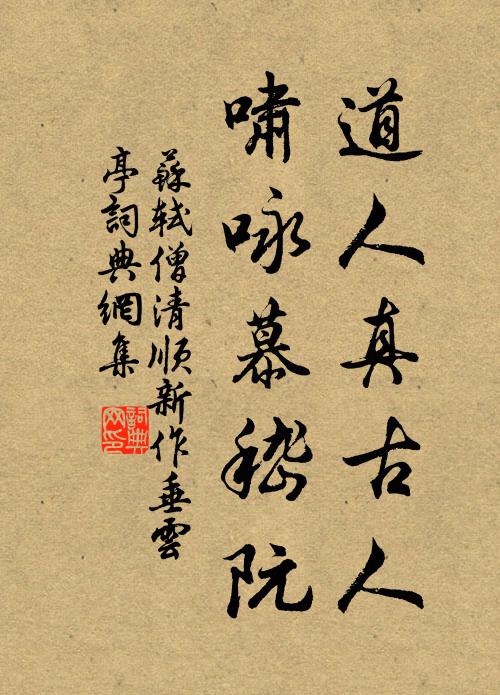 道人真古人
嘯咏慕嵇阮
蘇軾僧清順新作垂雲
亭詞典網集
詞典網印